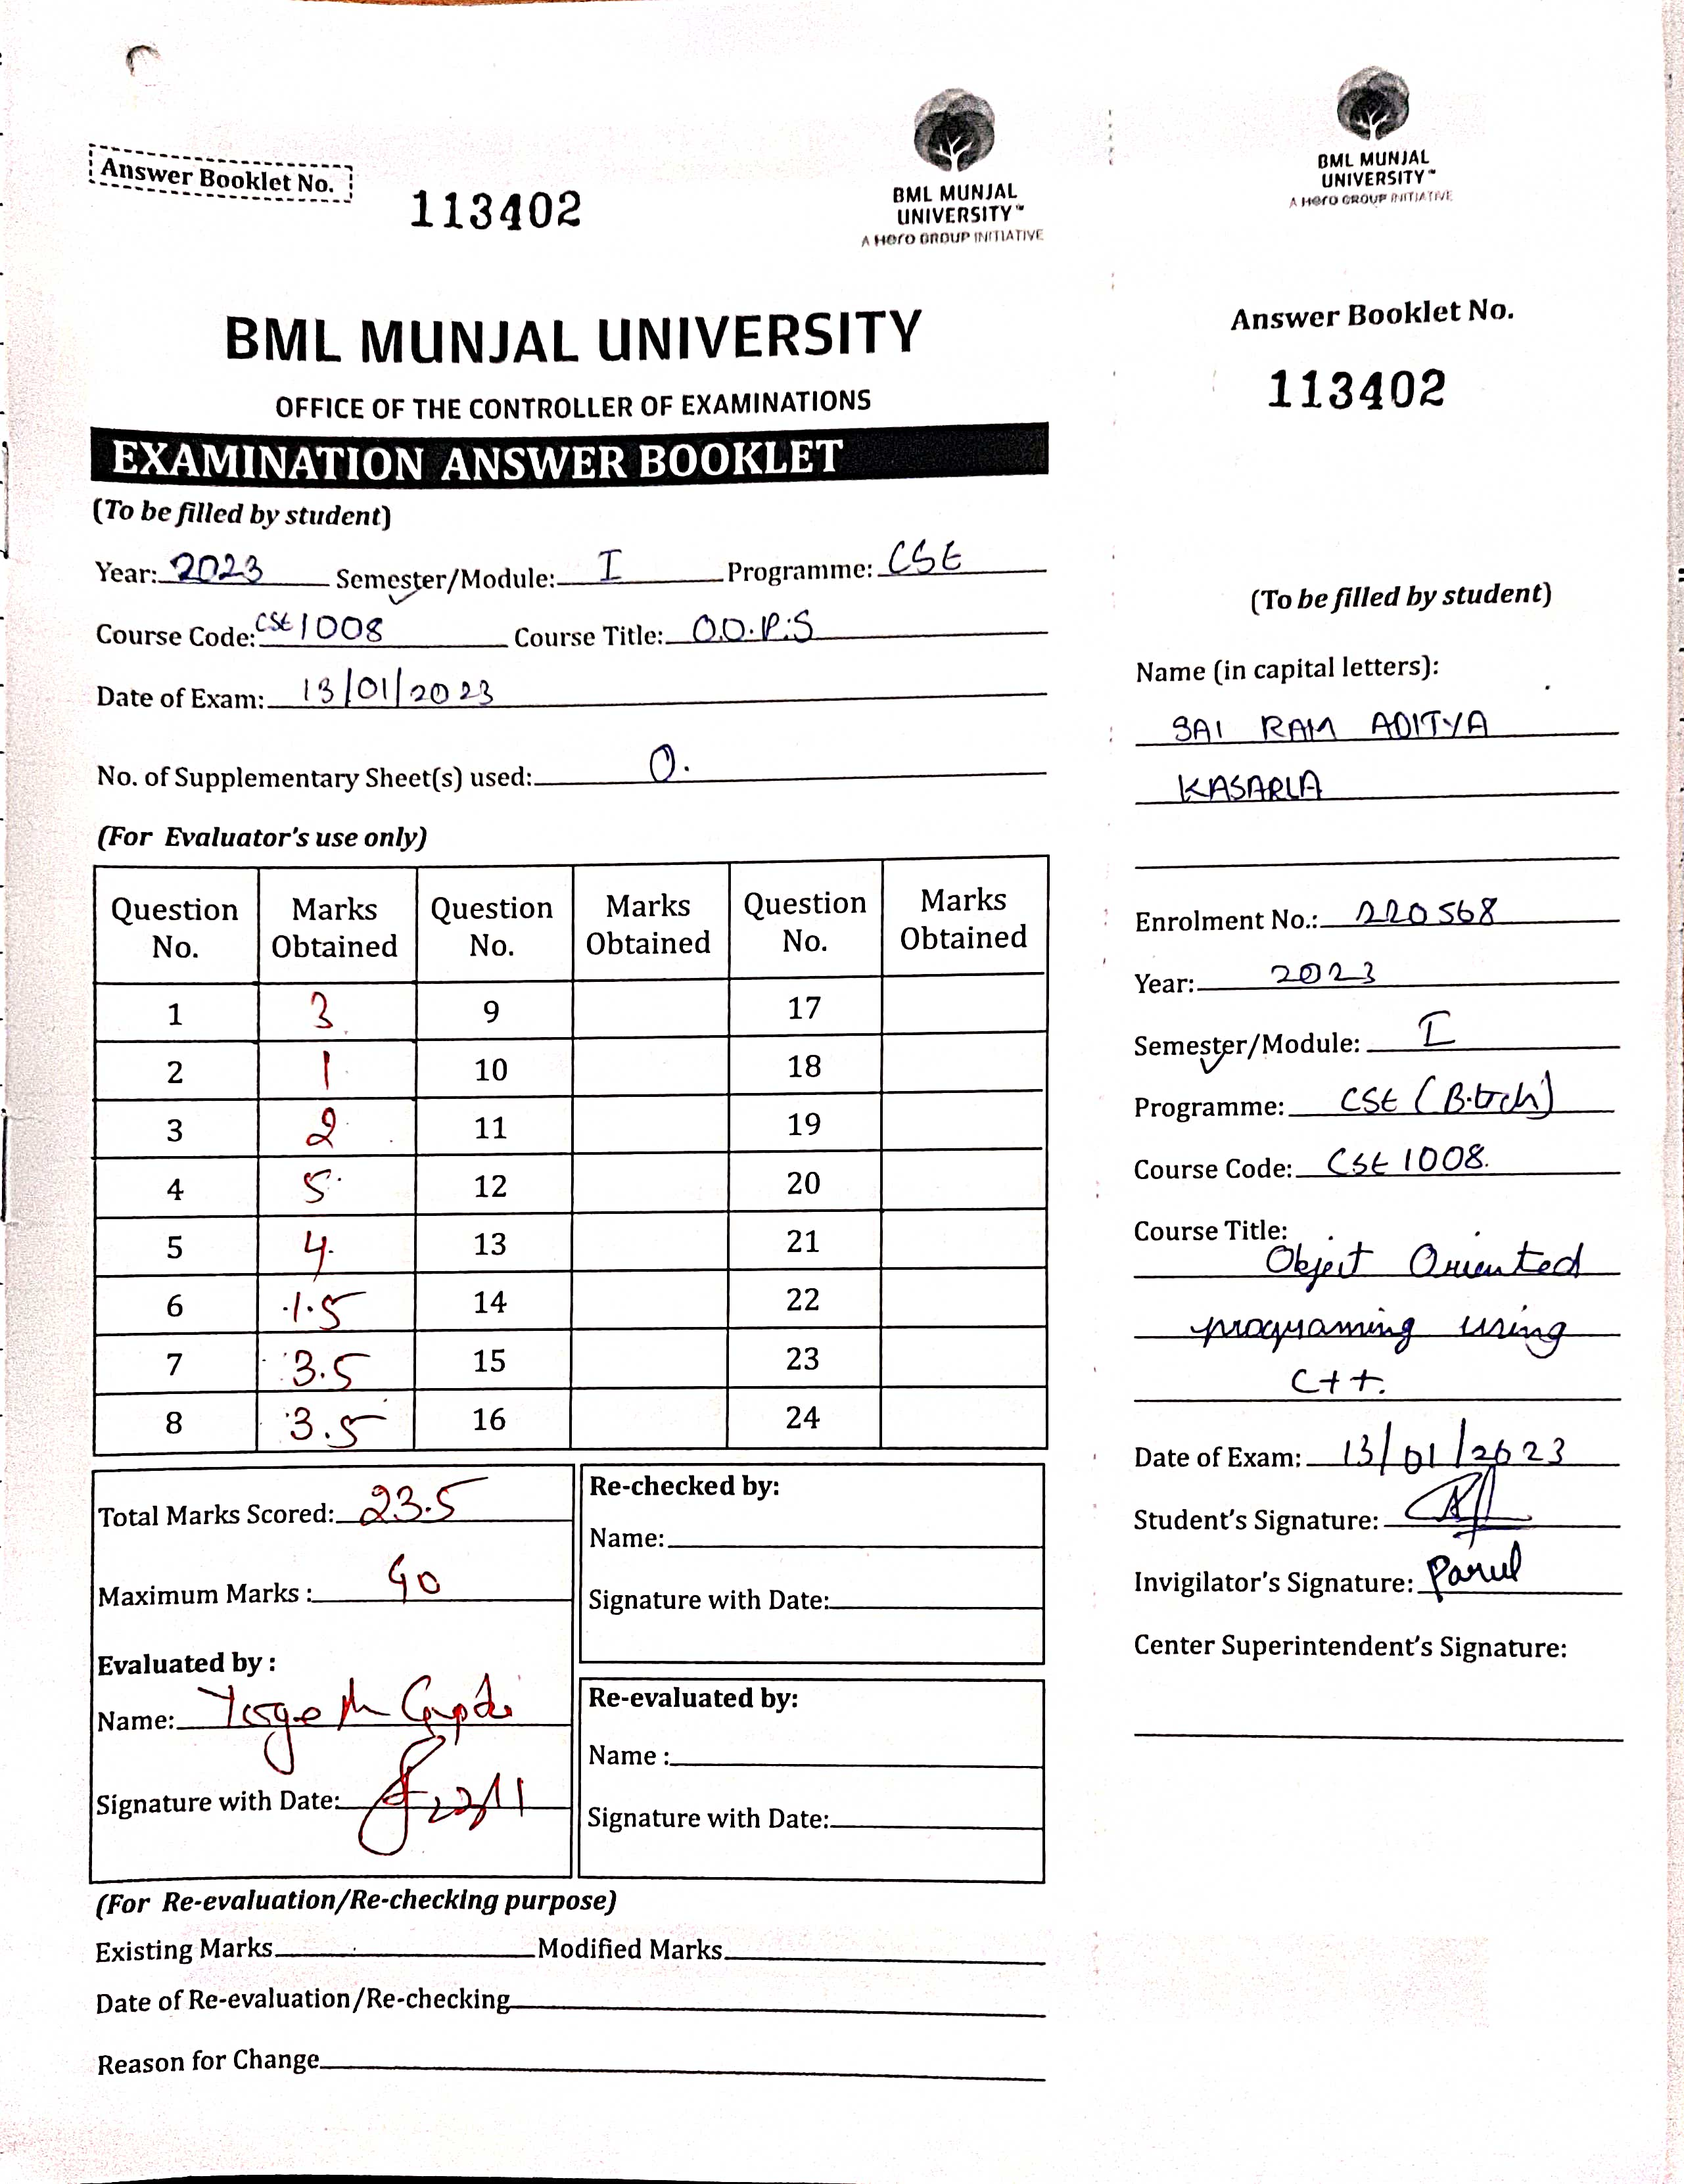 Answer Booklet No.
113402
BML MUNJAL
UNIVERSITY™
A Hero GROUP INITIATIVE
BML MUNJAL UNIVERSITY
OFFICE OF THE CONTROLLER OF EXAMINATIONS
EXAMINATION ANSWER BOOKLET
(To be filled by student)
Year: 2023 Semester/Module: I Programme: CSE
Course Code: CSE1008 Course Title: O.O.P.S
Date of Exam: 13/01/2023
No. of Supplementary Sheet(s) used: 0.
(For Evaluator's use only)
Question No. Marks Obtained Question No. Marks Obtained Question No. Marks Obtained
1 3 9 17
2 1 10 18
3 2 11 19
4 5 12 20
5 4 13 21
6 1.5 14 22
7 3.5 15 23
8 3.5 16 24
Total Marks Scored: 23.5
Maximum Marks : 40
Evaluated by :
Name: Yogesh Gupta
Signature with Date: 22/1
Re-checked by:
Name:
Signature with Date:
Re-evaluated by:
Name :
Signature with Date:
(For Re-evaluation/Re-checking purpose)
Existing Marks Modified Marks
Date of Re-evaluation/Re-checking
Reason for Change
BML MUNJAL
UNIVERSITY™
A Hero GROUP INITIATIVE
Answer Booklet No.
113402
(To be filled by student)
Name (in capital letters):
SAI RAM ADITYA
KASARLA
Enrolment No.: 220568
Year: 2023
Semester/Module: I
Programme: CSE (B.tech)
Course Code: CSE 1008.
Course Title:
Object Oriented
programing using
C++.
Date of Exam: 13/01/2023
Student's Signature:
Invigilator's Signature: Parul
Center Superintendent's Signature: